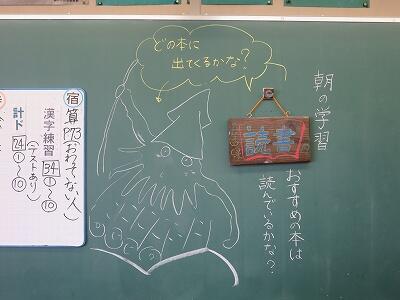 朝の学習
読書
おすすめの本は
読んでいるかな？
どの本に
出てくるかな？
宿
算
P73(おわってない人)
漢字練習
34
①〜⑩
計ド
24
①〜⑩
(テストあり)